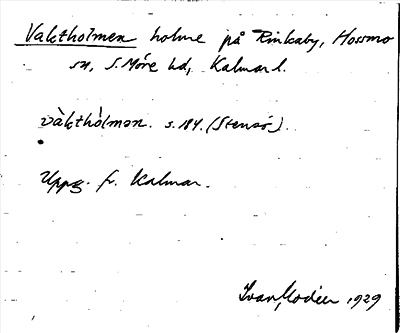 Vaktholmen holme på Rinkaby, Hossmo
sn, S. Möre hd, Kalmar l.
vàktho̊lmən. s. 184. (Stensö).
Uppg. fr. Kalmar.
Ivar Modéer 1929